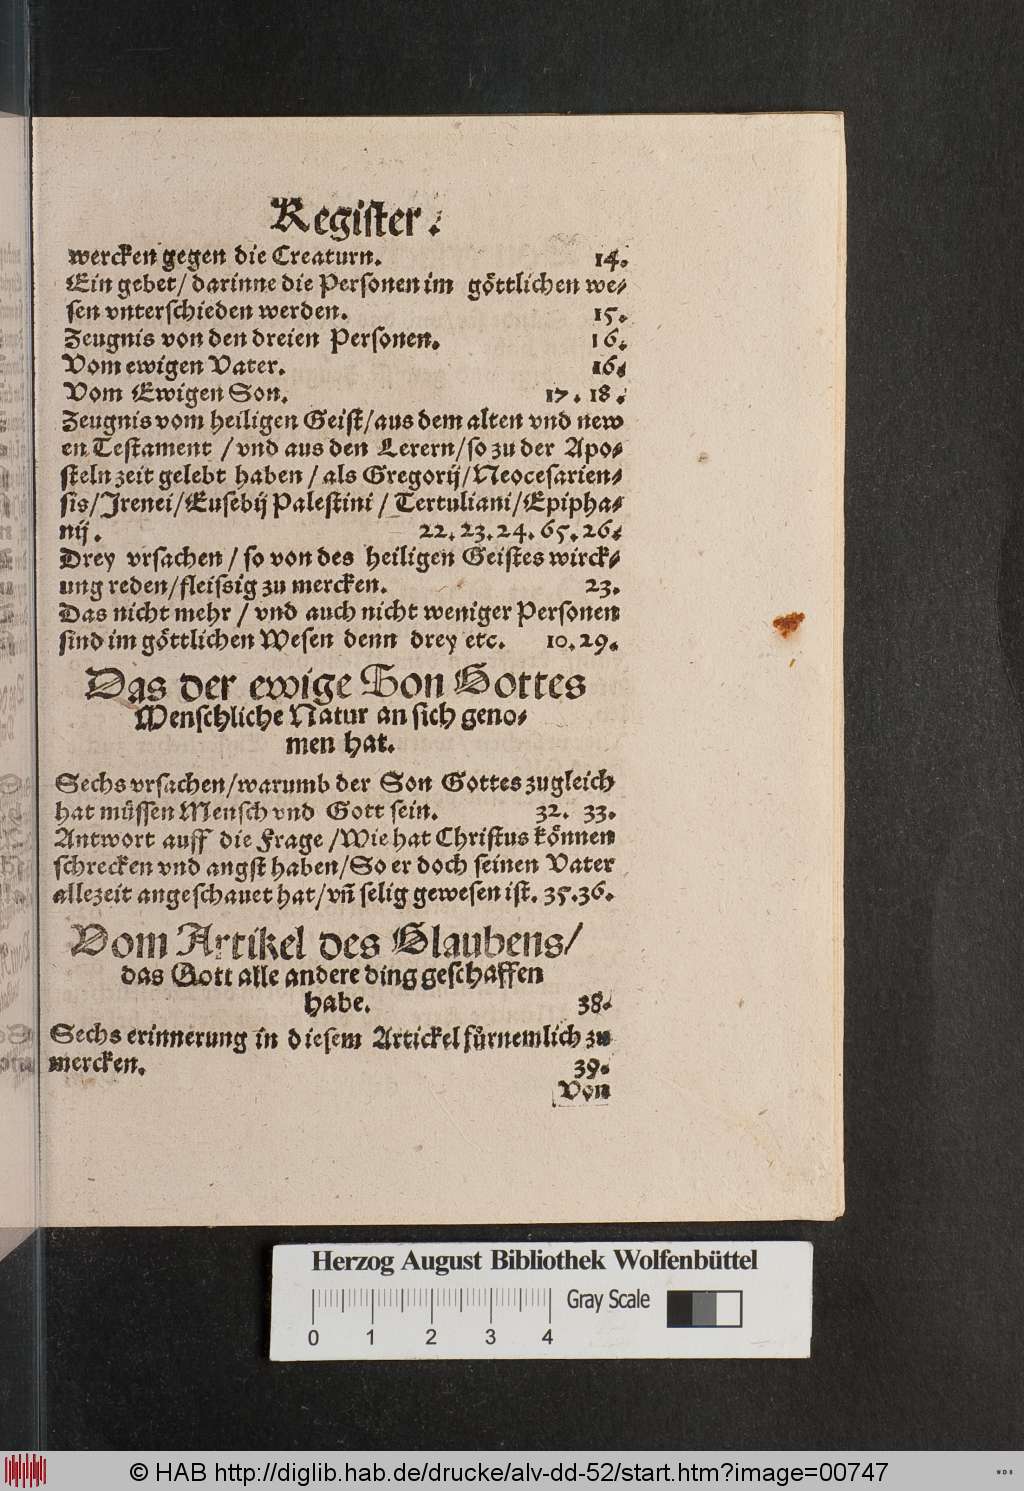 Register.
wercken gegen die Creaturn. 14.
Ein gebet/ darinne die Personen im göttlichen we⸗
sen vnterschieden werden. 15.
Zeugnis von den dreien Personen. 16.
Vom ewigen Vater. 16.
Vom Ewigen Son. 17. 18.
Zeugnis vom heiligen Geist/aus dem alten vnd new
en Testament /vnd aus den Lerern/so zu der Apo⸗
steln zeit gelebt haben / als Gregorij/Neocesarien⸗
sis/Irenei/Eusebij Palestini / Tertuliani/Epipha⸗
nij. 22. 23. 24. 65. 26.
Drey vrsachen / so von des heiligen Geistes wirck⸗
ung reden/fleissig zu mercken. 23.
Das nicht mehr / vnd auch nicht weniger Personen
sind im göttlichen Wesen denn drey etc. 10. 29.
Das der ewige Son Gottes
Menschliche Natur an sich geno⸗
men hat.
Sechs vrsachen/warumb der Son Gottes zugleich
hat müssen Mensch vnd Gott sein. 32. 33.
Antwort auff die Frage /Wie hat Christus können
schrecken vnd angst haben/So er doch seinen Vater
allezeit angeschauet hat/vñ selig gewesen ist. 35.36.
Vom Artikel des Glaubens/
das Gott alle andere ding geschaffen
habe. 38.
Sechs erinnerung in diesem Artickel fürnemlich zu
mercken. 39.
Von
Herzog August Bibliothek Wolfenbüttel
Gray Scale
0 1 2 3 4
© HAB http://diglib.hab.de/drucke/alv-dd-52/start.htm?image=00747